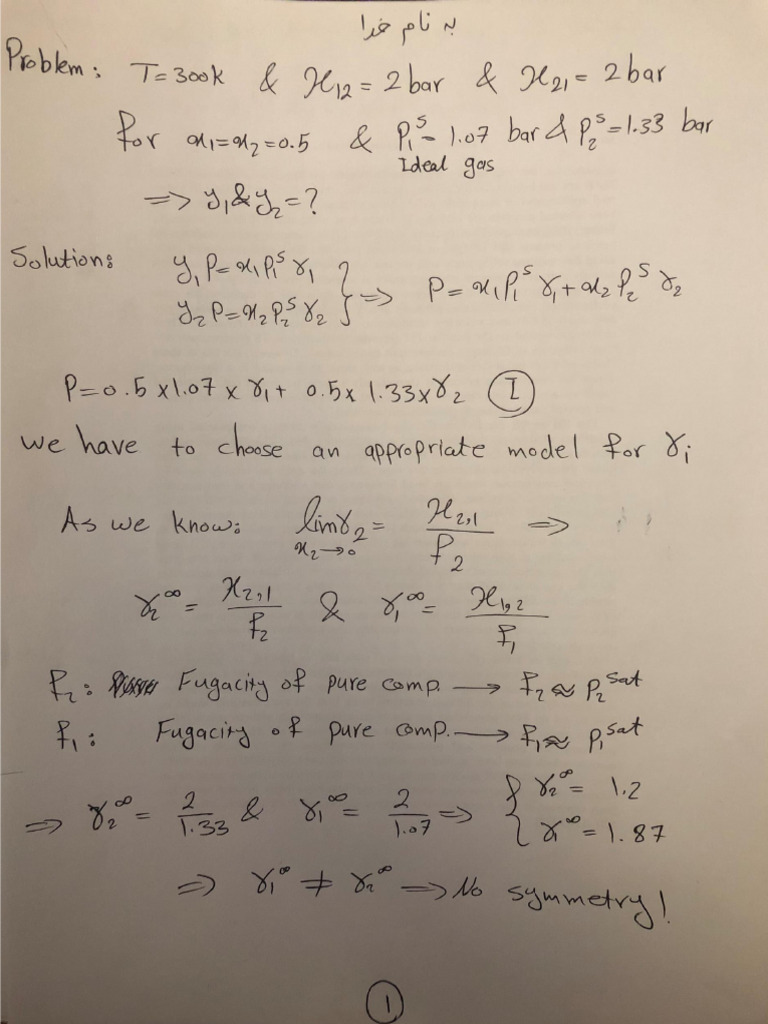 به نام خدا
Problem: T=300k & H₁₂ = 2 bar & H₂₁ = 2 bar
for x₁=x₂=0.5 & P₁ˢ= 1.07 bar & P₂ˢ=1.33 bar
Ideal gas
=> y₁&y₂=?
Solution: y₁P=x₁P₁ˢγ₁
y₂P=x₂P₂ˢγ₂ } => P=x₁P₁ˢγ₁+x₂P₂ˢγ₂
P=0.5×1.07×γ₁+ 0.5×1.33×γ₂ Ⓘ
we have to choose an appropriate model for γᵢ
As we know: lim γ₂ = H₂,₁/f₂ =>
x₂→0
γ₂^∞ = H₂,₁/f₂ & γ₁^∞ = H₁,₂/f₁
f₂: Fugacity of pure comp. → f₂≈P₂^sat
f₁: Fugacity of pure comp. → f₁≈P₁^sat
=> γ₂^∞ = 2/1.33 & γ₁^∞ = 2/1.07 => { γ₂^∞ = 1.2
γ₁^∞ = 1.87
=> γ₁^∞ ≠ γ₂^∞ → No symmetry!
①